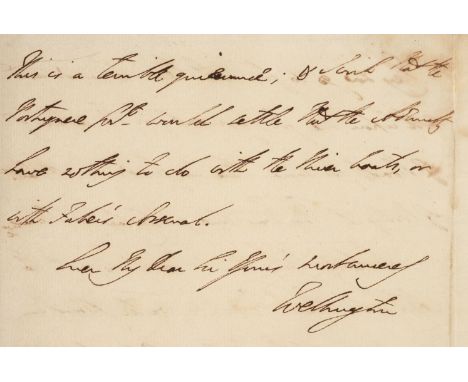 This is a terrible grievance; & I wish that the
Portuguese Govt. would settle that the Admiralty
have nothing to do with the River boats, or
with Fisher's Arsenal.
Ever My Dear Sir Yours most sincerely
Wellington